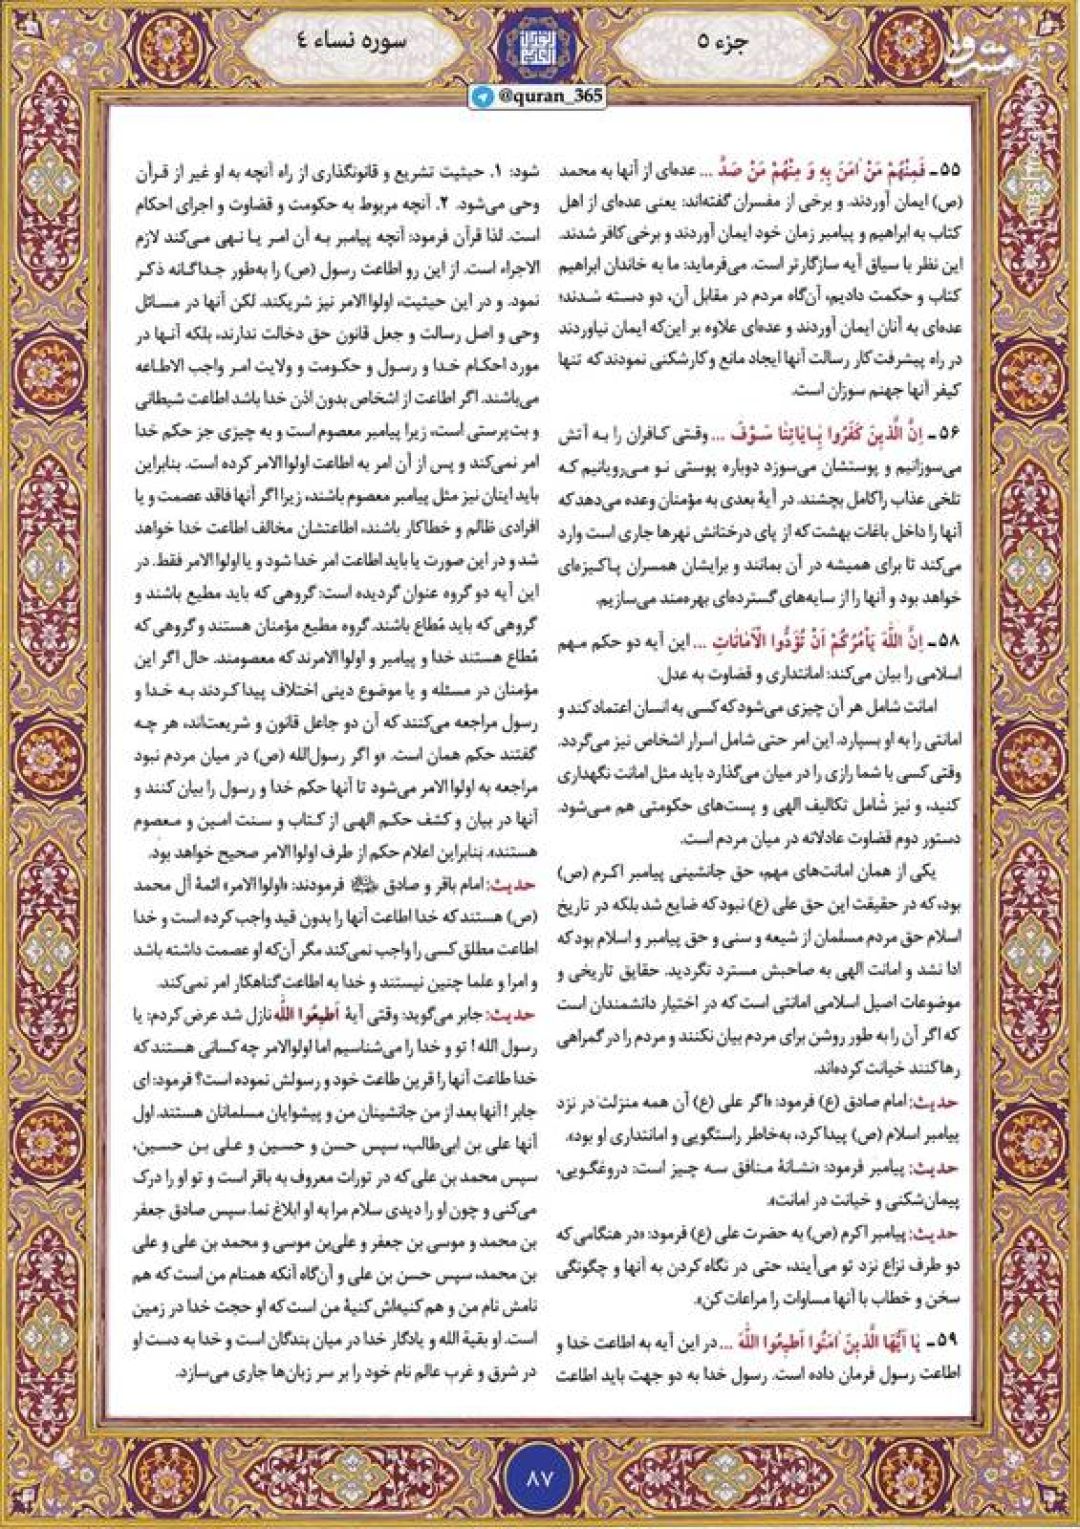 جزء ۵
سوره نساء ۴
@quran_365
۵۵ـ فَمِنْهُمْ مَنْ اٰمَنَ بِهِ وَ مِنْهُمْ مَنْ صَدَّ ... عده‌ای از آنها به محمد
(ص) ایمان آوردند. و برخی از مفسران گفته‌اند: یعنی عده‌ای از اهل
کتاب به ابراهیم و پیامبر زمان خود ایمان آوردند و برخی کافر شدند.
این نظر با سیاق آیه سازگارتر است. می‌فرماید: ما به خاندان ابراهیم
کتاب و حکمت دادیم، آن‌گاه مردم در مقابل آن، دو دسته شدند؛
عده‌ای به آنان ایمان آوردند و عده‌ای علاوه بر این‌که ایمان نیاوردند
در راه پیشرفت کار رسالت آنها ایجاد مانع و کارشکنی نمودند که تنها
کیفر آنها جهنم سوزان است.
۵۶ـ اِنَّ الَّذینَ کَفَرُوا بِـاٰیاتِنٰا سَـوْفَ ... وقـتی کـافران را بـه آتش
می‌سوزانیم و پوستشان می‌سوزد دوباره پوستی نـو مـی‌رویانیم کـه
تلخی عذاب را کامل بچشند. در آیهٔ بعدی به مؤمنان وعده می‌دهد که
آنها را داخل باغات بهشت که از پای درختانش نهرها جاری است وارد
می‌کند تا برای همیشه در آن بمانند و برایشان همسران پـاکـیزه‌ای
خواهد بود و آنها را از سایه‌های گسترده‌ای بهره‌مند می‌سازیم.
۵۸ـ اِنَّ اللّٰهَ یَأْمُرُکُمْ اَنْ تُؤَدُّوا الْاَمٰانٰاتِ ... این آیه دو حکم مـهم
اسلامی را بیان می‌کند: امانتداری و قضاوت به عدل.
امانت شامل هر آن چیزی می‌شود که کسی به انسان اعتماد کند و
امانتی را به او بسپارد. این امر حتی شامل اسرار اشخاص نیز می‌گردد.
وقتی کسی با شما رازی را در میان می‌گذارد باید مثل امانت نگهداری
کنید، و نیز شامل تکالیف الهی و پست‌های حکومتی هم مـی‌شود.
دستور دوم قضاوت عادلانه در میان مردم است.
یکی از همان امانت‌های مهم، حق جانشینی پیامبر اکـرم (ص)
بود، که در حقیقت این حق علی (ع) نبود که ضایع شد بلکه در تاریخ
اسلام حق مردم مسلمان از شیعه و سنی و حق پیامبر و اسلام بود که
ادا نشد و امانت الهی به صاحبش مسترد نگردید. حقایق تاریخی و
موضوعات اصیل اسلامی امانتی است که در اختیار دانشمندان است
که اگر آن را به طور روشن برای مردم بیان نکنند و مردم را در گمراهی
رها کنند خیانت کرده‌اند.
حدیث: امام صادق (ع) فرمود: «اگر علی (ع) آن همه منزلت در نزد
پیامبر اسلام (ص) پیدا کرد، به‌خاطر راستگویی و امانتداری او بود».
حدیث: پیامبر فرمود: «نشـانهٔ مـنافق سـه چـیز است: دروغگـویی،
پیمان‌شکنی و خیانت در امانت».
حدیث: پیامبر اکـرم (ص) به حضرت علی (ع) فرمود: «در هنگامی که
دو طرف نزاع نزد تو می‌آیند، حتی در نگاه کردن به آنها و چگونگی
سخن و خطاب با آنها مساوات را مراعات کن».
۵۹ـ یٰا اَیُّهَا الَّذینَ اٰمَنُوا اَطیعُوا اللّٰهَ ... در این آیه به اطاعت خدا و
اطاعت رسول فرمان داده است. رسول خدا به دو جهت باید اطاعت
شود: ۱. حیثیت تشریع و قانونگذاری از راه آنچه به او غیر از قـرآن
وحی می‌شود. ۲. آنچه مربوط به حکومت و قضاوت و اجرای احکام
است. لذا قرآن فرمود: آنچه پیامبر بـه آن امـر یـا نـهی مـی‌کند لازم
الاجراء است. از این رو اطاعت رسول (ص) را به‌طور جـداگـانه ذکـر
نمود. و در این حیثیت، اولوا الامر نیز شریکند. لکن آنها در مسـائل
وحی و اصل رسالت و جعل قانون حق دخالت ندارند، بلکه آنـها در
مورد احکام خـدا و رسـول و حکـومت و ولایت امـر واجب الاطـاعه
می‌باشند. اگر اطاعت از اشخاص بدون اذن خدا باشد اطاعت شیطانی
و بت‌پرستی است، زیرا پیامبر معصوم است و به چیزی جز حکم خدا
امر نمی‌کند و پس از آن امر به اطاعت اولوا الامر کرده است. بنابراین
باید اینان نیز مثل پیامبر معصوم باشند، زیرا اگر آنها فاقد عصمت و یا
افرادی ظالم و خطاکار باشند، اطاعتشان مخالف اطاعت خدا خواهد
شد و در این صورت یا باید اطاعت امر خدا شود و یا اولوا الامر فقط. در
این آیه دو گروه عنوان گردیده است: گروهی که باید مطیع باشند و
گروهی که باید مُطاع باشند. گروه مطیع مؤمنان هستند و گروهی که
مُطاع هستند خدا و پیامبر و اولوا الامرند که معصومند. حال اگر این
مؤمنان در مسئله و یا موضوع دینی اختلاف پیدا کـردند بـه خـدا و
رسول مراجعه می‌کنند که آن دو جاعل قانون و شریعت‌اند، هر چـه
گفتند حکم همان است. «و اگر رسول‌الله (ص) در میان مردم نبود
مراجعه به اولوا الامر می‌شود تا آنها حکم خدا و رسول را بیان کنند و
آنها در بیان و کشف حکـم الهـی از کـتاب و سـنت امـین و مـعصوم
هستند». بنابراین اعلام حکم از طرف اولوا الامر صحیح خواهد بود.
حدیث: امام باقر و صادق فرمودند: «اولوا الامر» ائمهٔ آل محمد
(ص) هستند که خدا اطاعت آنها را بدون قید واجب کرده است و خدا
اطاعت مطلق کسی را واجب نمی‌کند مگر آن‌که او عصمت داشته باشد
و امرا و علما چنین نیستند و خدا به اطاعت گناهکار امر نمی‌کند.
حدیث: جابر می‌گوید: وقتی آیهٔ اَطیعُوا اللّٰهَ نازل شد عرض کردم: یا
رسول الله! تو و خدا را می‌شناسیم اما اولوا الامر چه کسانی هستند که
خدا طاعت آنها را قرین طاعت خود و رسولش نموده است؟ فرمود: ای
جابر! آنها بعد از من جانشینان من و پیشوایان مسلمانان هستند. اول
آنها علی بن ابی‌طالب، سپس حسن و حسین و عـلی بـن حسـین،
سپس محمد بن علی که در تورات معروف به باقر است و تو او را درک
می‌کنی و چون او را دیدی سلام مرا به او ابلاغ نما. سپس صادق جعفر
بن محمد و موسی بن جعفر و علی‌بن موسی و محمد بن علی و علی
بن محمد، سپس حسن بن علی و آن‌گاه آنکه همنام من است که هم
نامش نام من و هم کنیه‌اش کنیهٔ من است که او حجت خدا در زمین
است. او بقیة الله و یادگار خدا در میان بندگان است و خدا به دست او
در شرق و غرب عالم نام خود را بر سر زبان‌ها جاری می‌سازد.
۸۷